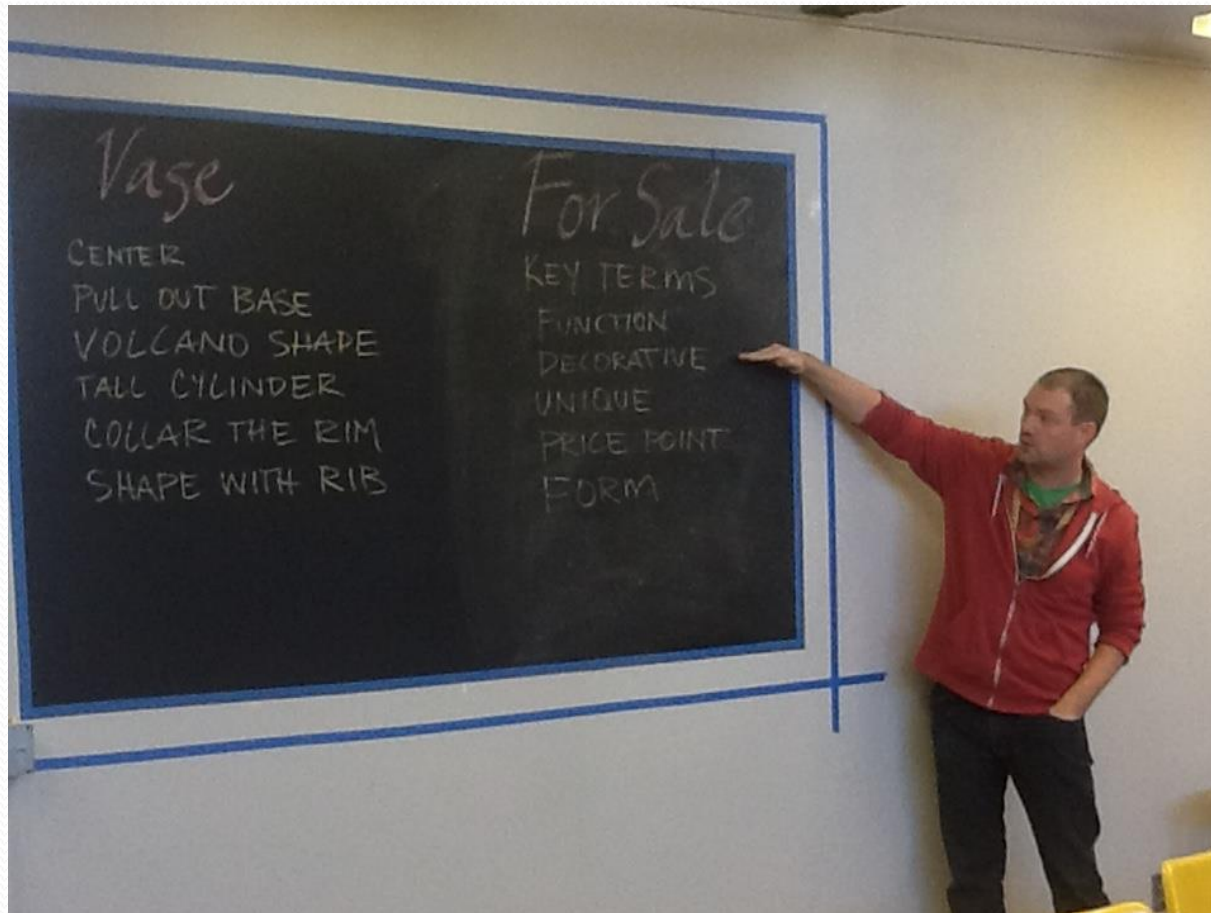 Vase
CENTER
PULL OUT BASE
VOLCANO SHAPE
TALL CYLINDER
COLLAR THE RIM
SHAPE WITH RIB
For Sale
KEY TERMS
FUNCTION
DECORATIVE
UNIQUE
PRICE POINT
FORM